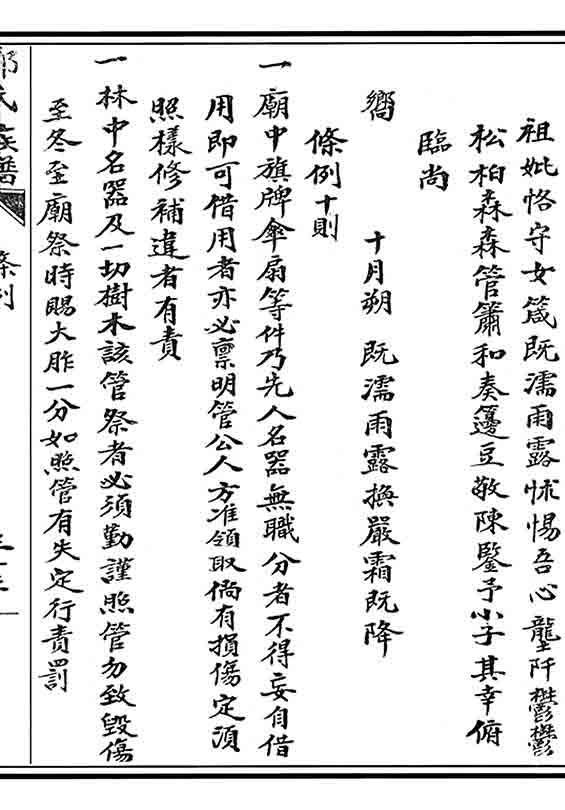 祖妣恪守女箴既濡雨露怵惕吾心壟阡鬱鬱
松柏森森管簫和奏籩豆敬陳鑒予小子其幸俯
臨尚
嚮
十月朔 既濡雨露撫嚴霜既降
條例十則
一廟中旗牌傘扇等件乃先人名器無職分者不得妄自借
用即可借用者亦必禀明管公人方准領取倘有損傷定須
照樣修補違者有責
一林中名器及一切樹木該管祭者必須勤謹照管勿致毀傷
至冬至廟祭時賜大胙一分如照管有失定行責罰
氏族譜
條列